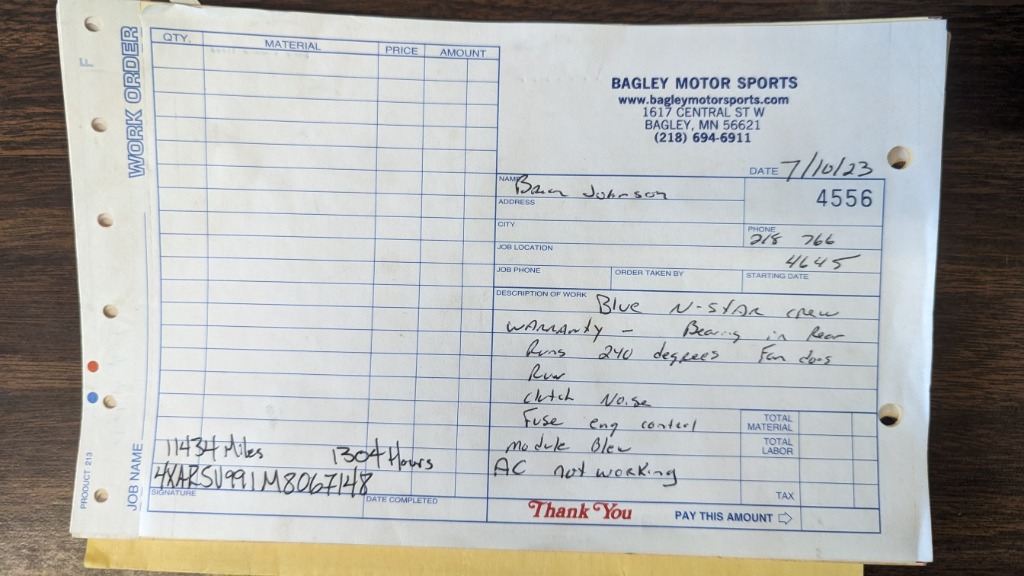 F
WORK ORDER
JOB NAME
PRODUCT 213
QTY. MATERIAL PRICE AMOUNT
BAGLEY MOTOR SPORTS
www.bagleymotorsports.com
1617 CENTRAL ST W
BAGLEY, MN 56621
(218) 694-6911
DATE 7/10/23
NAME Brian Johnson
4556
ADDRESS
CITY
PHONE
218 766
4645
JOB LOCATION
JOB PHONE ORDER TAKEN BY STARTING DATE
DESCRIPTION OF WORK Blue N-STAR crew
WARRANTY - Bearing in Rear
Runs 240 degrees Fan does
Run
clutch Noise
Fuse eng control
module Blew
AC not working
TOTAL
MATERIAL
TOTAL
LABOR
TAX
11434 Miles 1304 Hours
4XARSU991M8067148
SIGNATURE DATE COMPLETED
Thank You PAY THIS AMOUNT